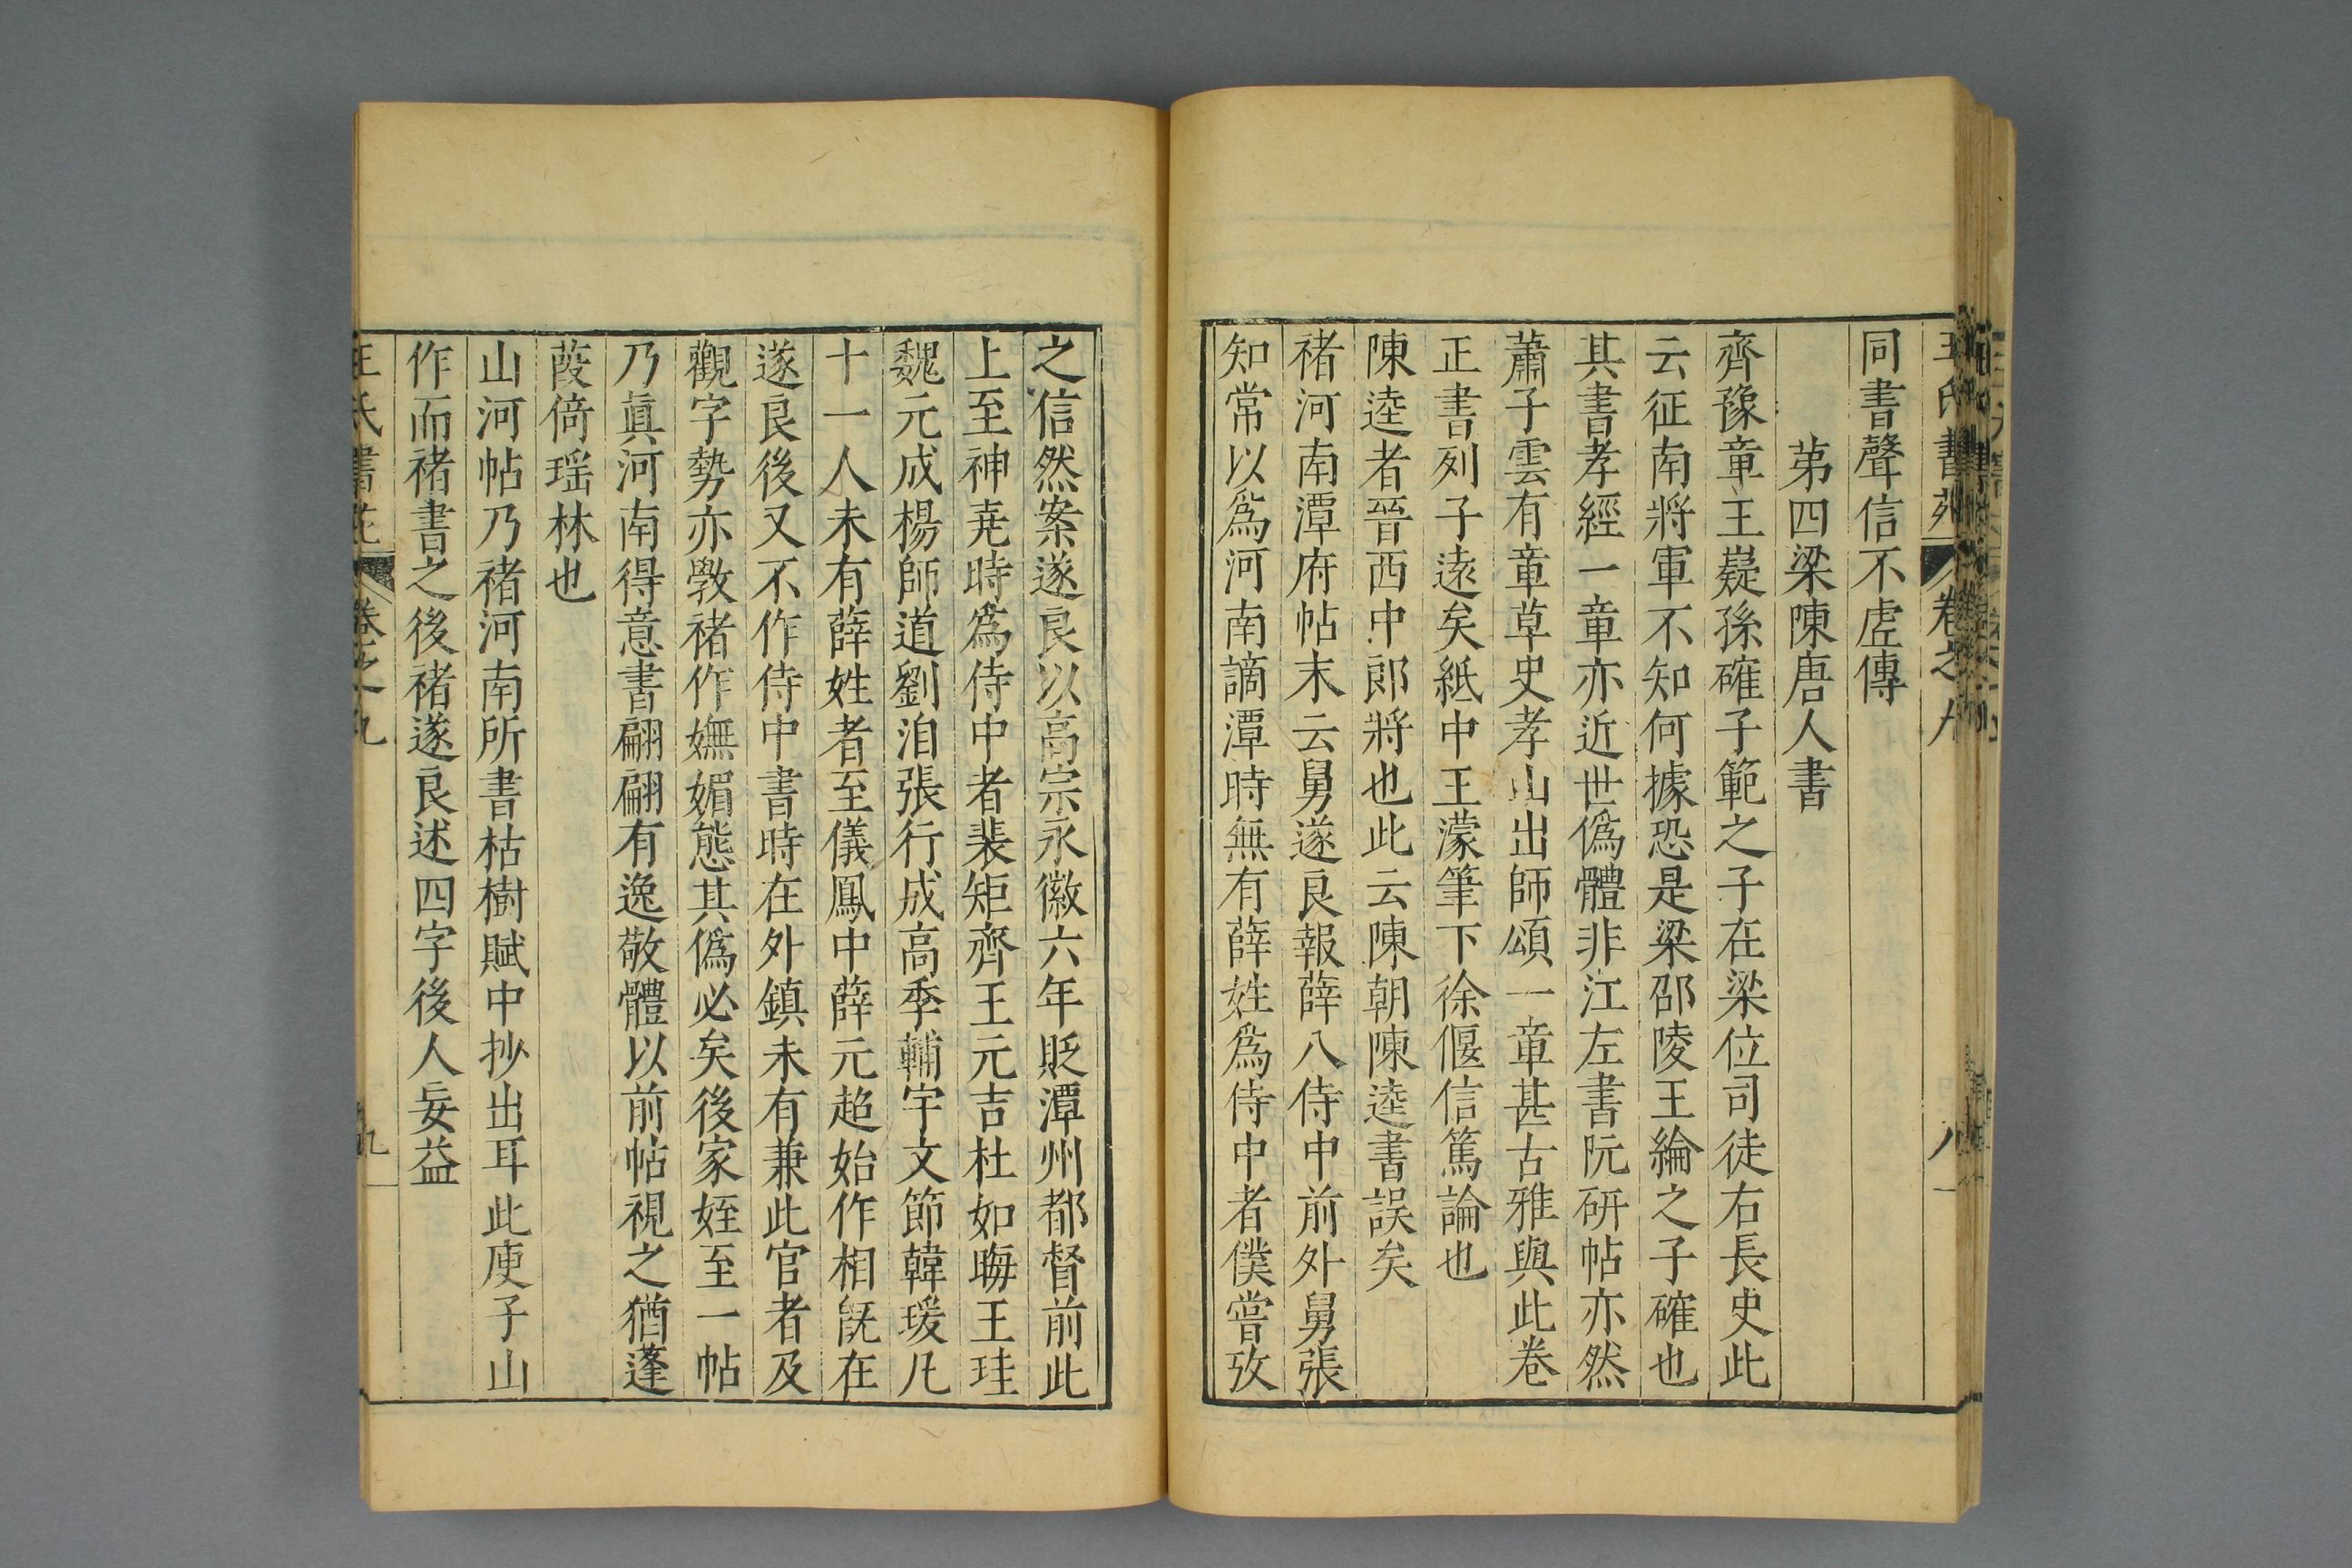 同書聲信不虛傳
第四梁陳唐人書
齊豫章王嶷孫確子範之子在梁位司徒右長史此
云征南將軍不知何據恐是梁邵陵王綸之子確也
其書孝經一章亦近世僞體非江左書阮研帖亦然
蕭子雲有章草史孝山出師頌一章甚古雅與此卷
正書列子逺矣紙中王濛筆下徐偃信篤論也
陳逵者晉西中郎將也此云陳朝陳逵書誤矣
褚河南潭府帖末云舅遂良報薛八侍中前外舅張
知常以爲河南謫潭時無有薛姓爲侍中者僕嘗攷
之信然案遂良以高宗永徽六年貶潭州都督前此
上至神堯時爲侍中者裴矩齊王元吉杜如晦王珪
魏元成楊師道劉洎張行成高季輔宇文節韓瑗凡
十一人未有薛姓者至儀鳳中薛元超始作相旣在
遂良後又不作侍中書時在外鎮未有兼此官者及
觀字勢亦斆褚作嫵媚態其僞必矣後家姪至一帖
乃眞河南得意書翩翩有逸敬體以前帖視之猶蓬
葭倚瑶林也
山河帖乃褚河南所書枯樹賦中抄出耳此庾子山
作而褚書之後褚遂良述四字後人妄益
王氏書苑 卷之九 九